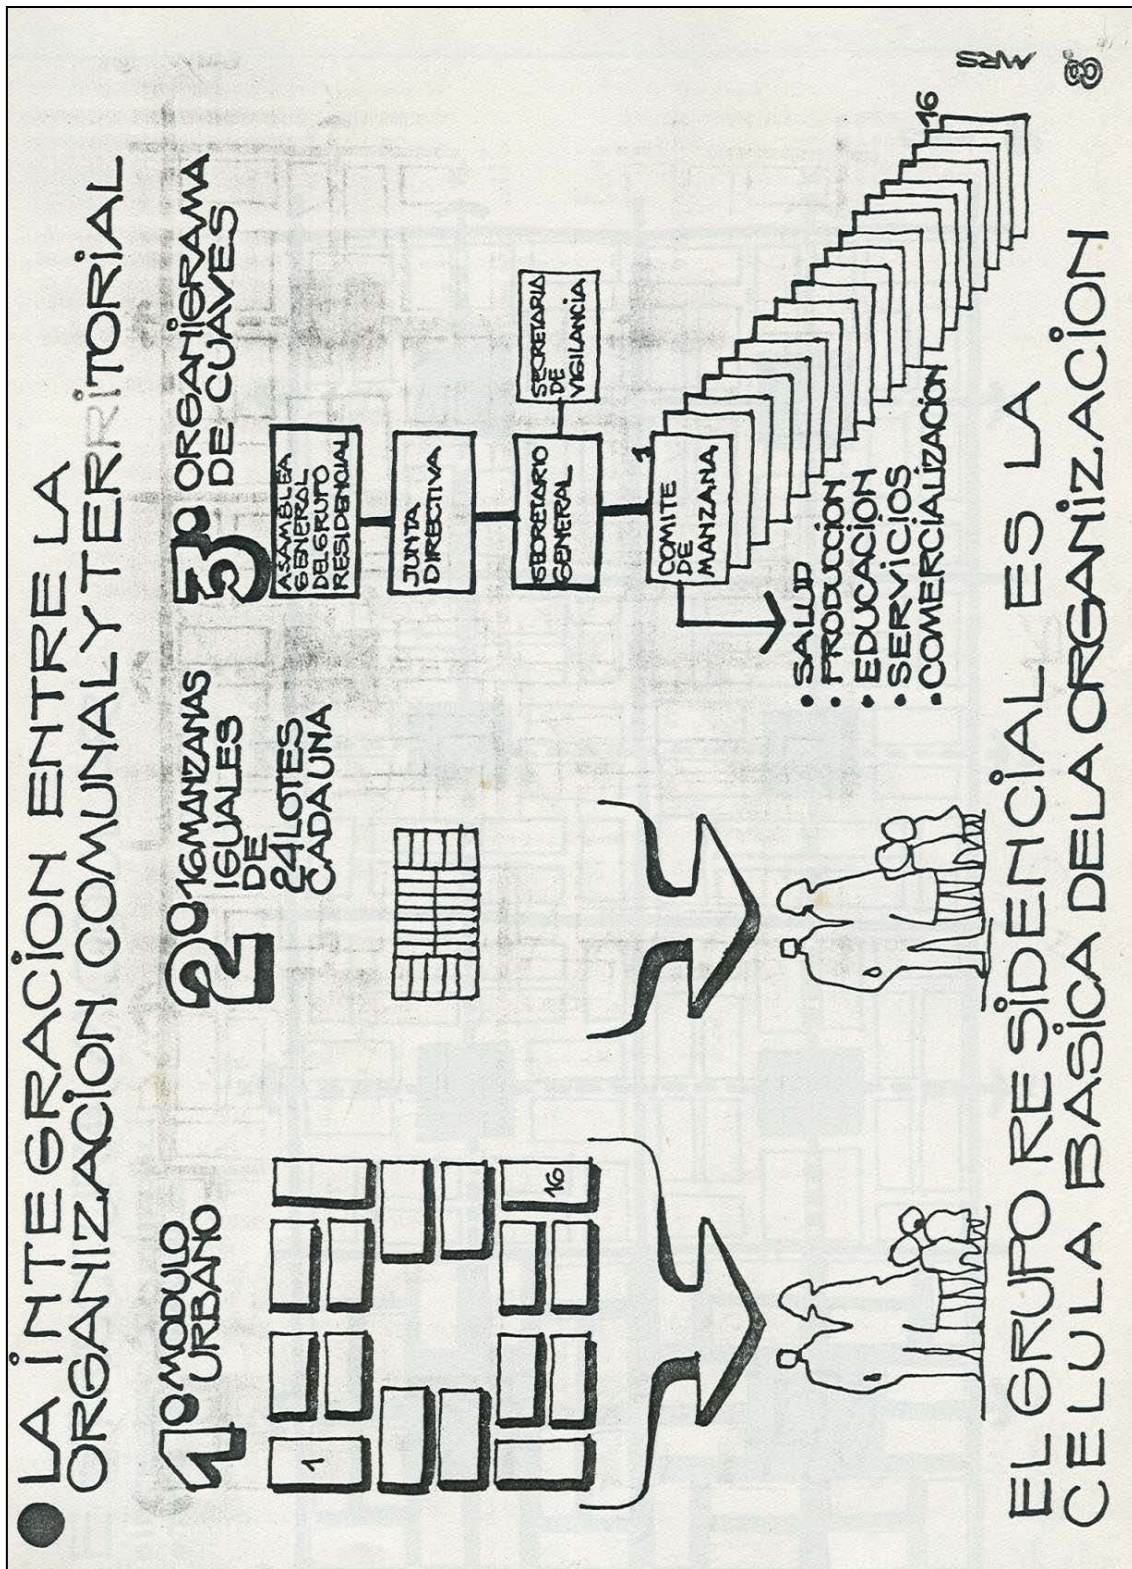 LA INTEGRACION ENTRE LA
ORGANIZACION COMUNAL Y TERRITORIAL
1º MODULO
URBANO
1
16
2º 16 MANZANAS
IGUALES
DE
24 LOTES
CADA UNA
3º ORGANIGRAMA
DE CUAVES
ASAMBLEA
GENERAL
DEL GRUPO
RESIDENCIAL
JUNTA
DIRECTIVA
SECRETARIO
GENERAL
SECRETARIA
DE
VIGILANCIA
COMITE
DE
MANZANA
1
16
• SALUD
• PRODUCCIÓN
• EDUCACION
• SERVICIOS
• COMERCIALIZACIÓN
EL GRUPO RESIDENCIAL ES LA
CELULA BASICA DE LA ORGANIZACION
MRS